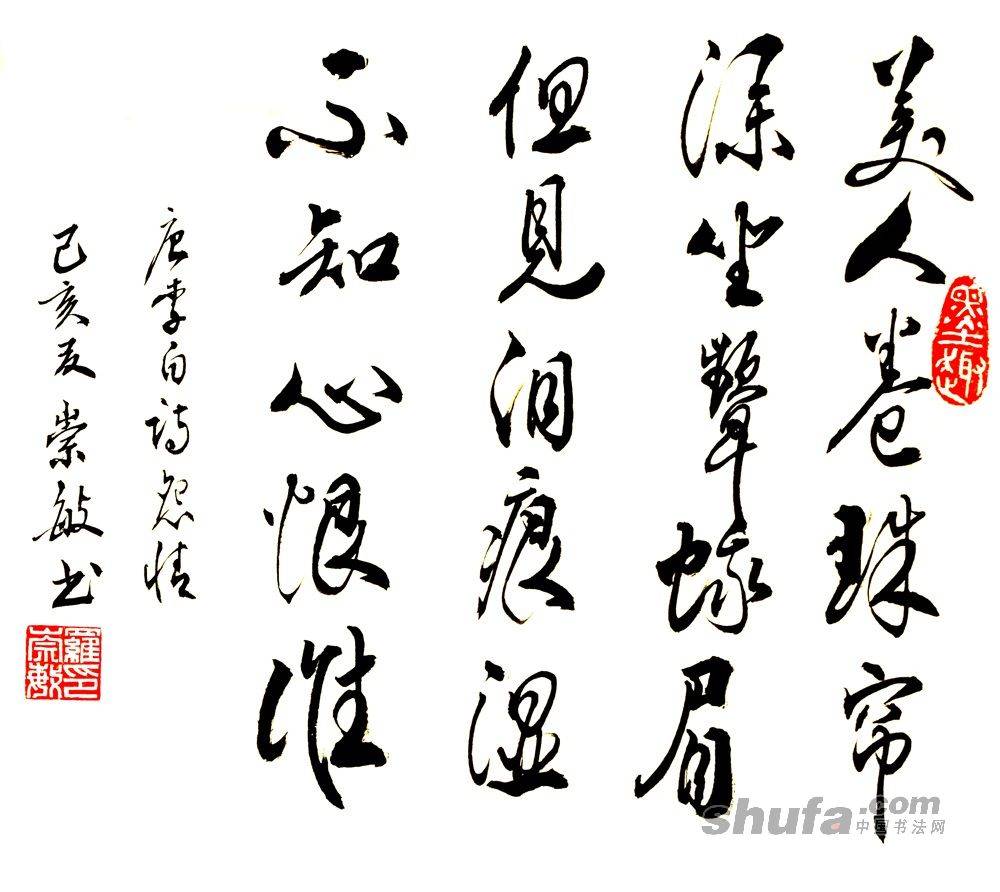 美人卷珠帘
深坐颦蛾眉
但见泪痕湿
不知心恨谁
唐李白诗怨情
己亥夏崇敏书
墨趣
罗崇敏印
shufa.com
中国书法网